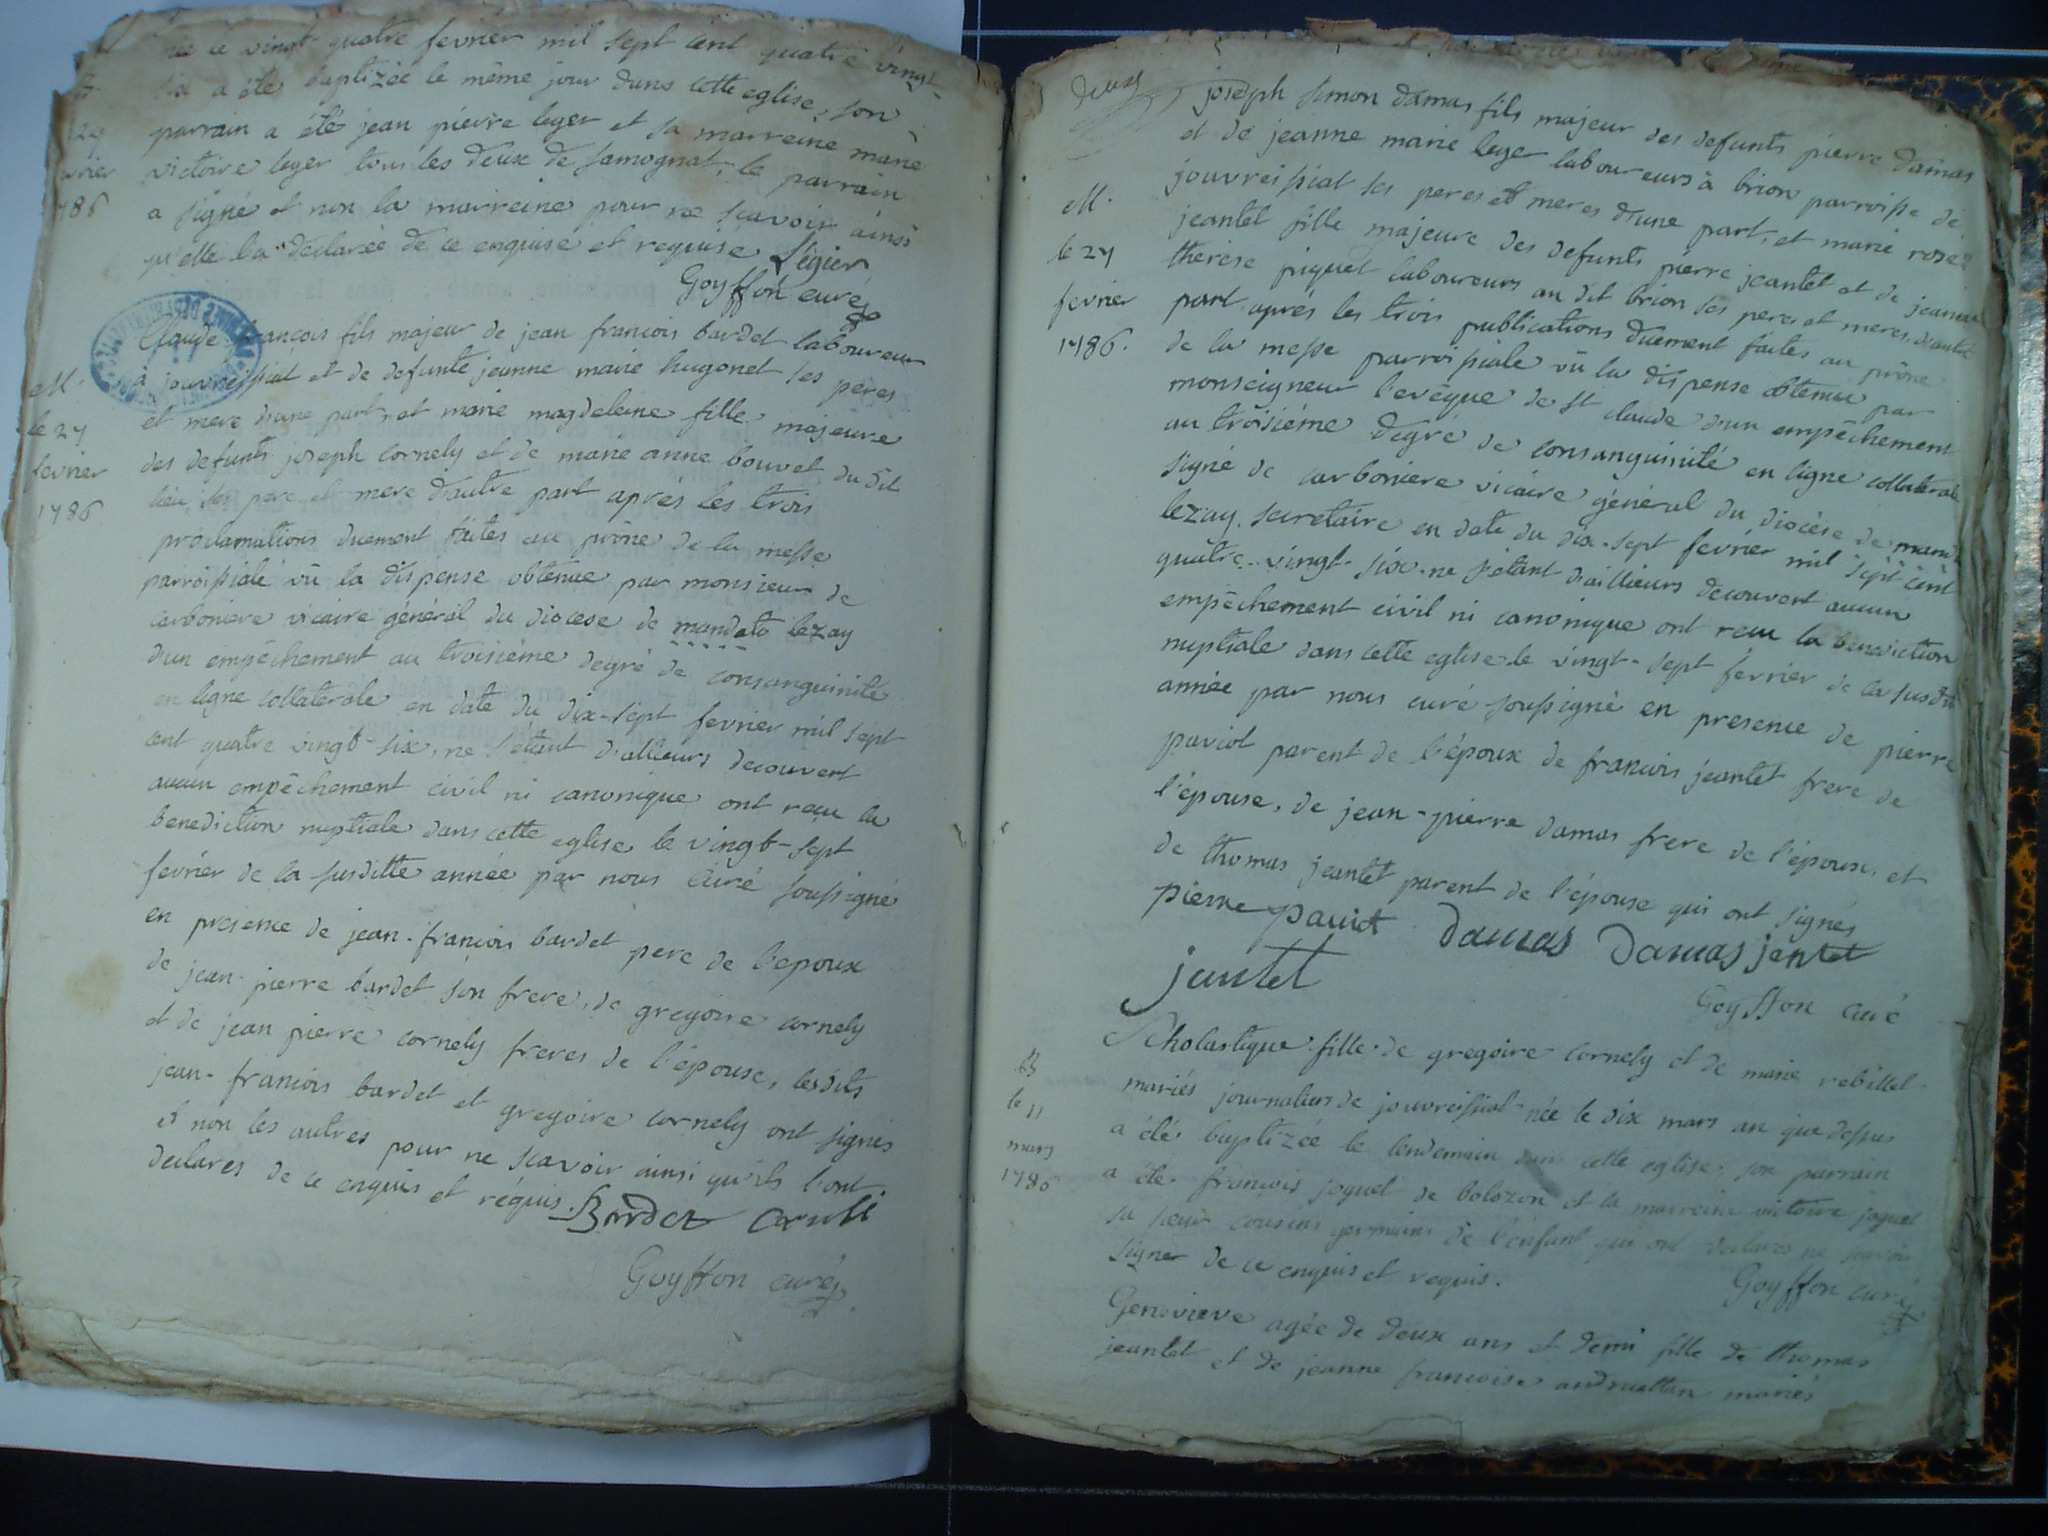 née ce vingt quatre fevrier mil sept cent quatre vingt-
six a été baptizée le même jour dans cette eglise, son
parrain a été jean pierre leger et sa marreine marie
victoire leger tous les deux de samognat, le parrain
a signé et non la marreine pour ne scavoir ainsi
qu'elle l'a declarée de ce enquise et requise Légier
Goyffon curé
M.
le 27
fevrier
1786
Claude françois fils majeur de jean francois bardet laboureur
à jouvreissiat et de defunte jeanne marie hugonet ses peres
et mere d'une part, et marie magdeleine fille majeure
des defunts joseph cornely et de marie anne bouvet du dit
lieu ses pere et mere d'autre part aprés les trois
proclamations duement faites au prône de la messe
parroissiale vû la dispense obtenue par monsieur de
carboniere vicaire général du diocese de mandato lezay
d'un empêchement au troisiéme degré de consanguinité
en ligne collaterale en date du dix-sept fevrier mil sept
cent quatre vingt-six, ne s'étant d'allieurs decouvert
aucun empêchement civil ni canonique ont reçu la
benediction nuptiale dans cette eglise le vingt-sept
fevrier de la susditte année par nous curé soussigné
en presence de jean-francois bardet pere de l'epoux
de jean-pierre bardet son frere, de gregoire cornely
et de jean pierre cornely freres de l'épouse, lesdits
jean-francois bardet et gregoire cornely ont signés
et non les autres pour ne scavoir ainsi qu'ils l'ont
declares de ce enquis et réquis. Bardet
Goyffon curé
deux
M.
le 27
fevrier
1786.
joseph simon damas fils majeur des defunts pierre damas
et de jeanne marie leger laboureurs à brion parroisse de
jouvreissiat ses peres et meres d'une part, et marie rose
jeantet fille majeure des defunts pierre jeantet et de jeanne
therese piquet laboureurs au dit brion ses peres et meres d'autre
part aprés les trois publications duement faites au prône
de la messe parroissiale vû la dispense obtenue par
monseigneur l'evêque de st claude d'un empêchement
au troisiéme degré de consanguinité en ligne collaterale
signé de carboniere vicaire général du diocèse de
lezay. secretaire en date du dix-sept fevrier mil sept cent
quatre-vingt-six. ne s'étant d'aillieurs decouvert aucun
empêchement civil ni canonique ont reçu la benediction
nuptiale dans cette eglise le vingt-sept fevrier de la susdite
année par nous curé soussigné en presence de pierre
paviot parent de l'époux de francois jeantet frere de
l'épouse, de jean-pierre damas frere de l'époux, et
de thomas jeantet parent de l'épouse qui ont signés
pierre paviot damas damas jentet
jantet
Goyffon curé
B
le 11
mars
1786
Scholastique fille de gregoire cornely et de marie rebillet
mariés journaliers de jouvreissiat née le dix mars an que dessus
a été baptizée le lendemain dans cette eglise. son parrain
a été françois joquet de bolozon et la marreine victoire joquet
sa sœur cousins germains de l'enfant qui ont declarés ne scavoir
signer de ce enquis et requis.
Goyffon curé
Genevieve agée de deux ans et demi fille de thomas
jeantet et de jeanne francoise mariés